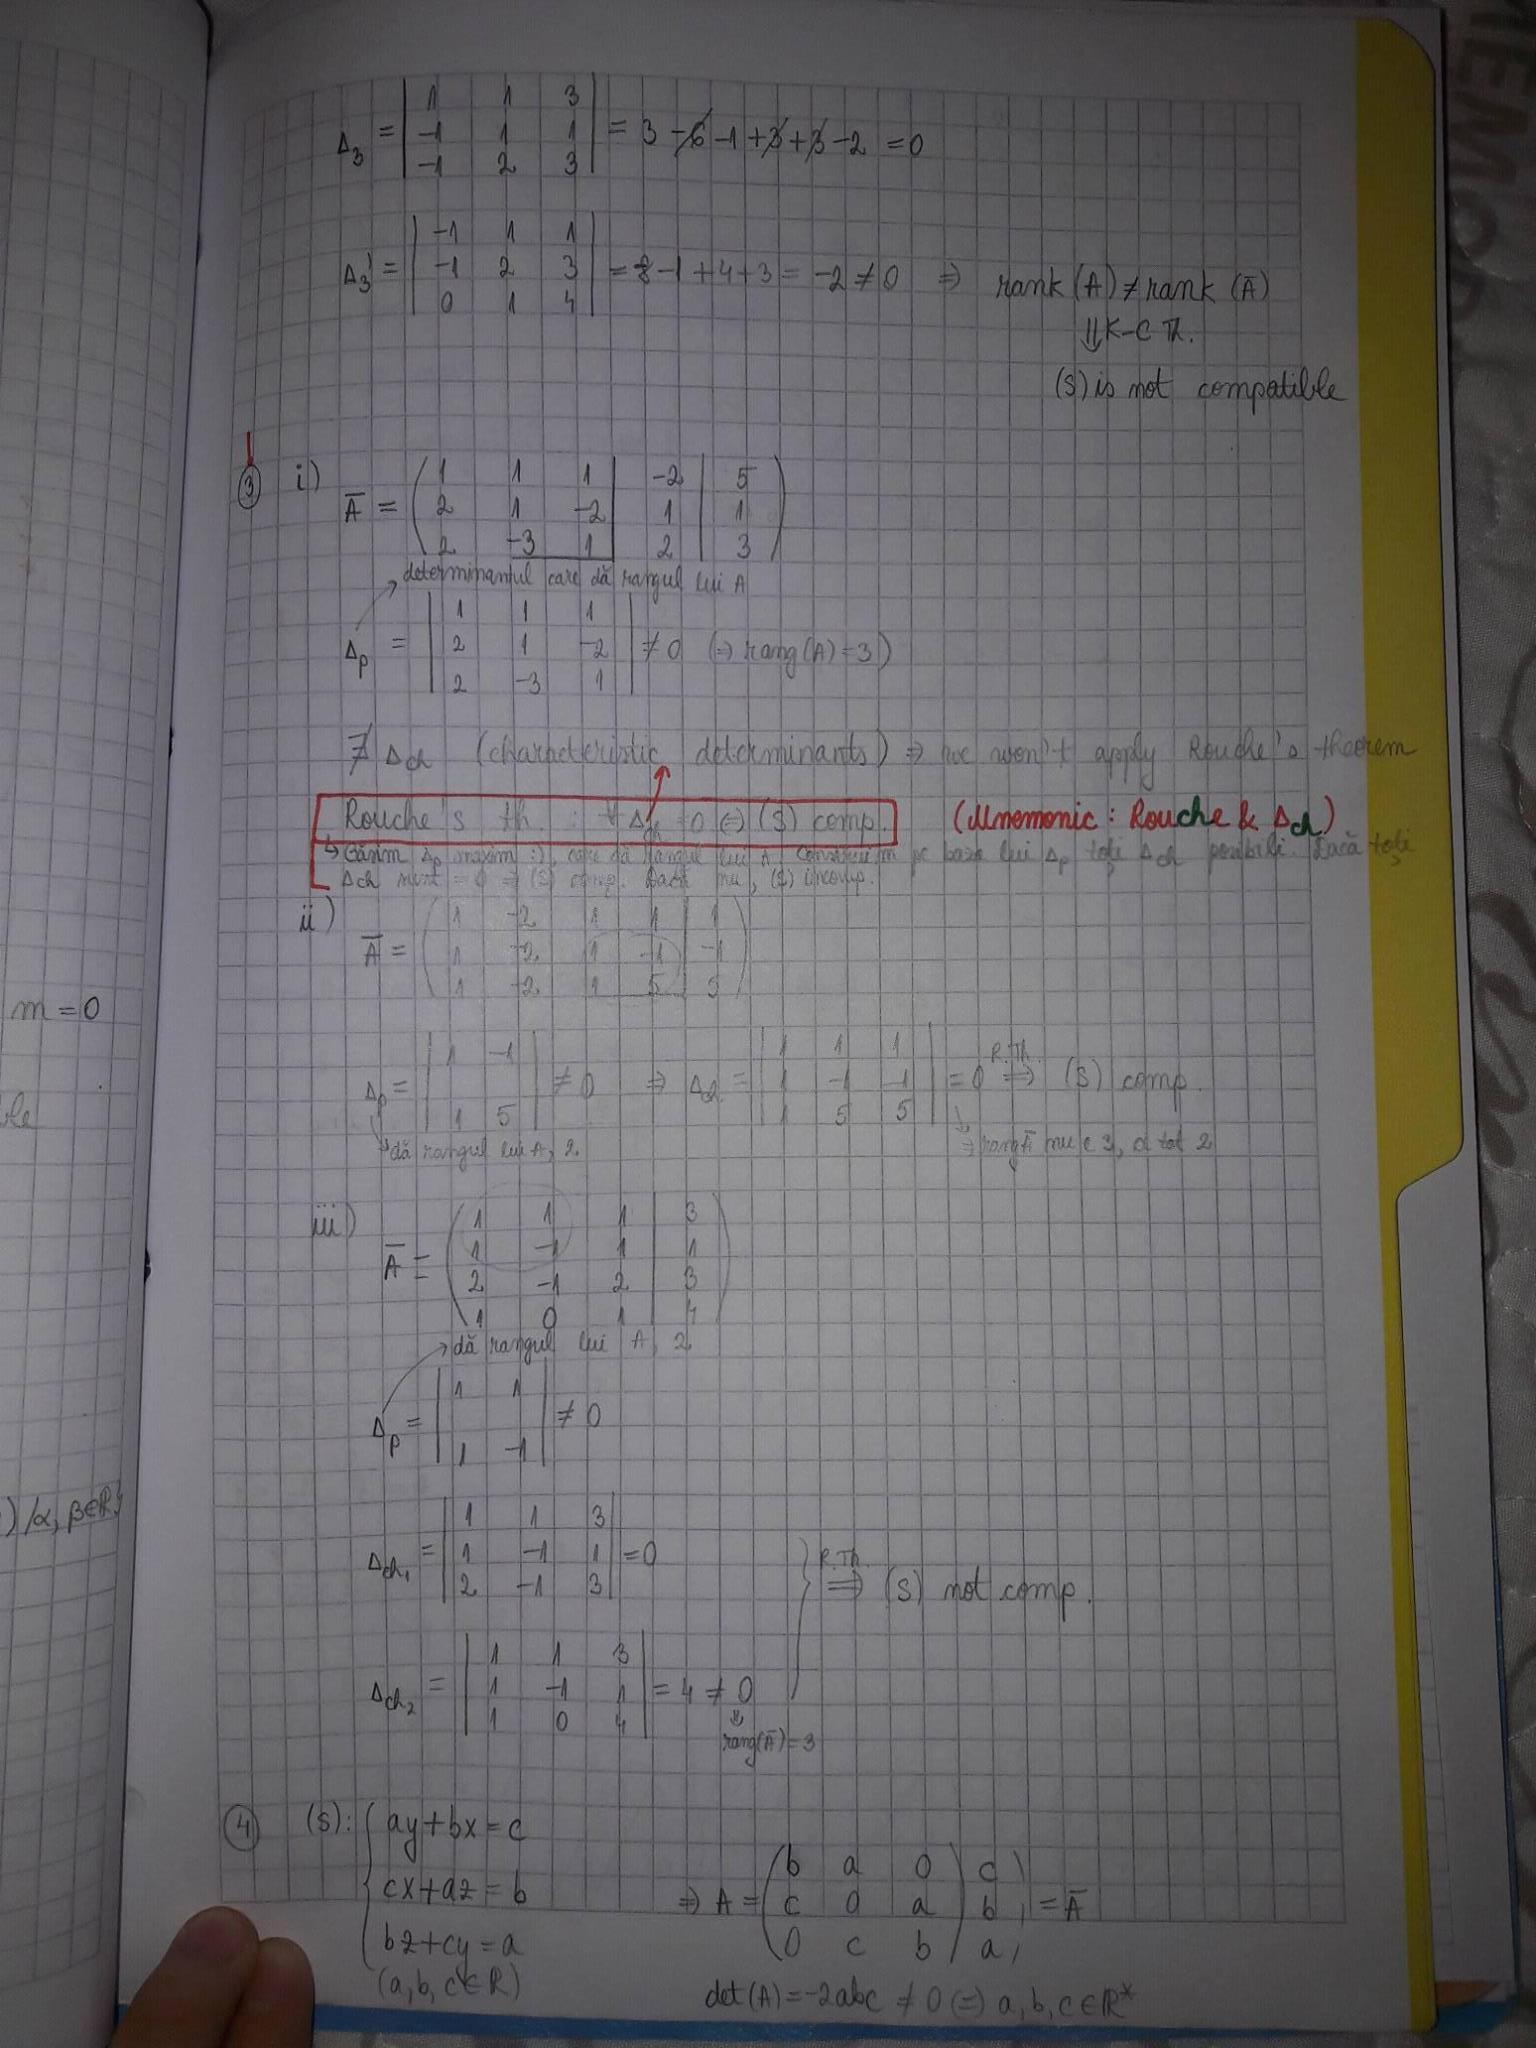 Δ₃ = | 1 1 3 |
| -1 1 1 | = 3 - 6 - 1 + 3 + 3 - 2 = 0
| -1 2 3 |
Δ₃' = | -1 1 1 |
| -1 2 3 | = -8 - 1 + 4 + 3 = -2 ≠ 0 ⇒ rank (A) ≠ rank (Ā)
| 0 1 4 |
⇓ K-C Th.
(S) is not compatible
③ i)
Ā = ( 1 1 1 | -2 | 5 )
( 2 1 -2 | 1 | 1 )
( 2 -3 1 | 2 | 3 )
determinantul care dă rangul lui A
Δp = | 1 1 1 |
| 2 1 -2 | ≠ 0 (⇒ rang(A) = 3)
| 2 -3 1 |
∄ Δch (characteristic determinants) ⇒ we won't apply Rouche's theorem
Rouche's th. : ∀ Δch = 0 ⇔ (S) comp. (Mnemonic: Rouche & Δch)
↳ Găsim Δp maxim :), care dă rangul lui A. Construim pe baza lui Δp toți Δch posibili. Dacă toți
Δch sunt = 0 ⇒ (S) comp. Dacă nu, (S) incomp.
ii)
Ā = ( 1 -2 1 1 | 1 )
( 1 -2 1 -1 | -1 )
( 1 -2 1 5 | 5 )
Δp = | 1 -1 |
| 1 5 | ≠ 0 ⇒ Δch = | 1 1 1 |
| 1 -1 -1 | = 0 R.Th. ⇒ (S) comp.
| 1 5 5 |
dă rangul lui A, 2
⇒ rang Ā nu e 3, ci tot 2
iii)
Ā = ( 1 1 1 | 3 )
( 1 -1 1 | 1 )
( 2 -1 2 | 3 )
( 1 0 1 | 4 )
dă rangul lui A, 2
Δp = | 1 1 |
| 1 -1 | ≠ 0
Δch₁ = | 1 1 3 |
| 1 -1 1 | = 0
| 2 -1 3 |
R.Th. ⇒ (S) not comp.
Δch₂ = | 1 1 3 |
| 1 -1 1 | = 4 ≠ 0
| 1 0 4 |
⇓
rang(Ā) = 3
④ (S): { ay + bx = c
cx + az = b
bz + cy = a
(a, b, c ∈ R)
⇒ A = ( b a 0 | c )
( c 0 a | b ) = Ā
( 0 c b | a )
det(A) = -2abc ≠ 0 (=) a, b, c ∈ R*
m = 0
) /α, β∈R}